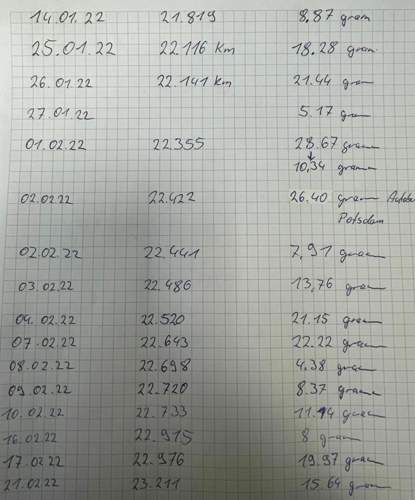 14.01.22 21.819 8,87 gram
25.01.22 22.116 Km 18.28 gram
26.01.22 22.141 Km 21.44 gram
27.01.22 5.17 gram
01.02.22 22.355 28.67 gram
10,34 gram
02.02.22 22.422 26.40 gram
Potsdam
02.02.22 22.441 7,91 gram
03.02.22 22.486 13,76 gram
04.02.22 22.520 21.15 gram
07.02.22 22.643 22.22 gram
08.02.22 22.698 4.38 gram
09.02.22 22.720 8.37 gram
10.02.22 22.733 11.14 gram
16.02.22 22.915 8 gram
17.02.22 22.976 19.97 gram
21.02.22 23.211 15.64 gram